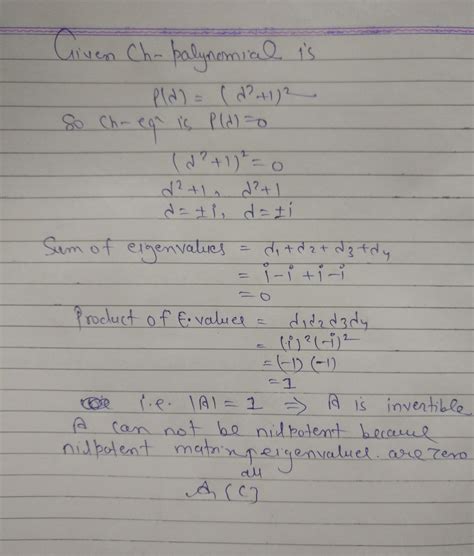 Given Ch- palynomial is
P(d) = (d²+1)²
So Ch-eqⁿ is P(d)=0
(d²+1)²=0
d²+1, d²+1
d=±i, d=±i
Sum of eigenvalues = d₁+d₂+d₃+d₄
= i-i+i-i
=0
Product of E.values = d₁d₂d₃d₄
= (i)²(-i)²
=(-1)(-1)
=1
i.e. |A|=1 ⇒ A is invertible
A can not be nidpotent because
nidpotent matrix eigenvalues are zero
all
(C)